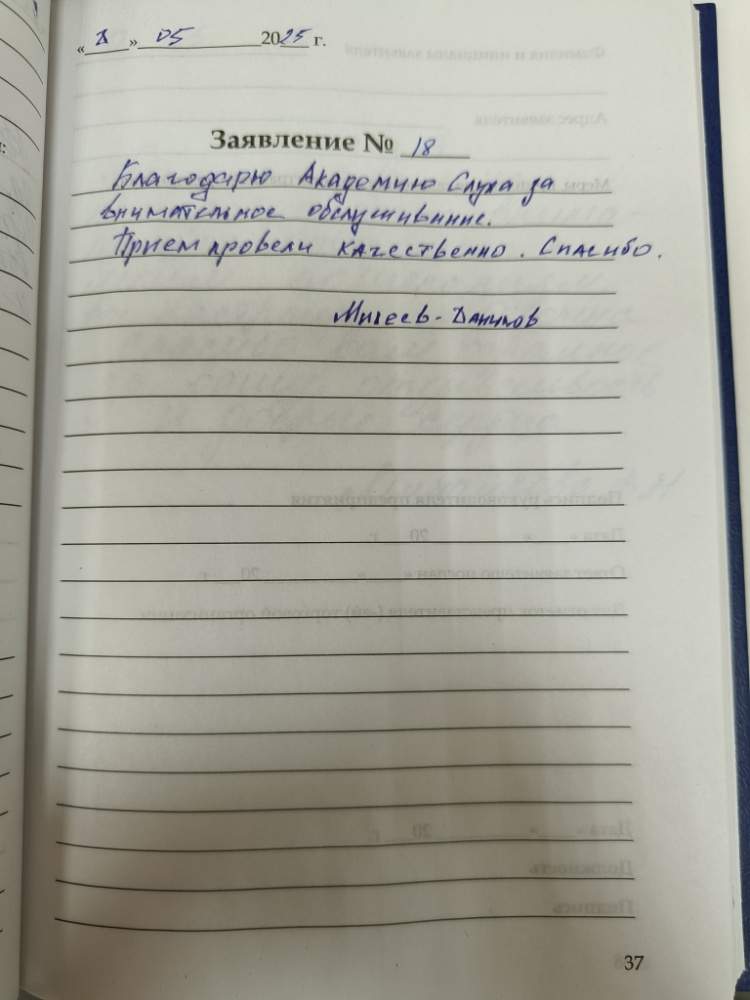 « » 05 2025 г.
Заявление № 18
Благодарю Академию Слуха за
внимательное обслуживание.
Прием провели качественно. Спасибо.
Михеев-Данилов
37